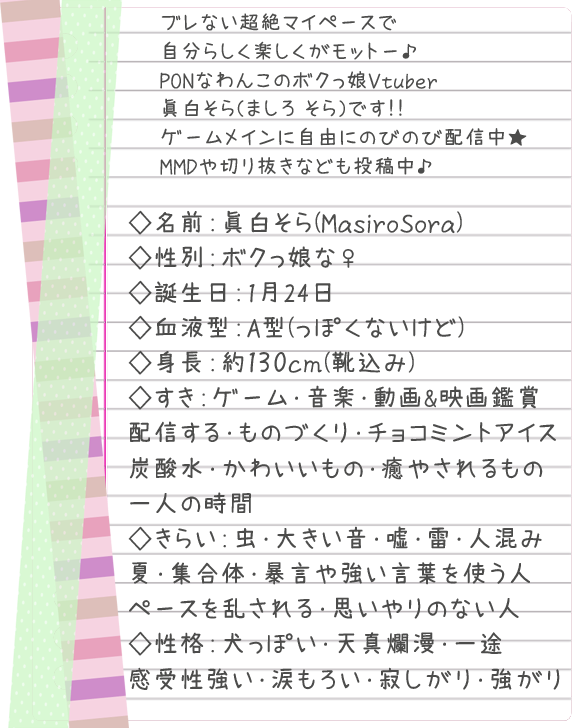 ブレない超絶マイペースで
自分らしく楽しくがモットー♪
PONなわんこのボクっ娘Vtuber
眞白そら(ましろ そら)です!!
ゲームメインに自由にのびのび配信中★
MMDや切り抜きなども投稿中♪
◇名前:眞白そら(MasiroSora)
◇性別:ボクっ娘な♀
◇誕生日:1月24日
◇血液型:A型(っぽくないけど)
◇身長:約130cm(靴込み)
◇すき:ゲーム・音楽・動画&映画鑑賞
配信する・ものづくり・チョコミントアイス
炭酸水・かわいいもの・癒やされるもの
一人の時間
◇きらい:虫・大きい音・嘘・雷・人混み
夏・集合体・暴言や強い言葉を使う人
ペースを乱される・思いやりのない人
◇性格:犬っぽい・天真爛漫・一途
感受性強い・涙もろい・寂しがり・強がり